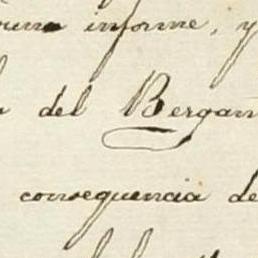 informe, y
del Bergan
consequencia de